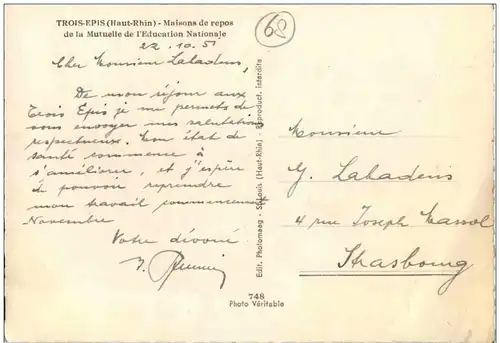 TROIS-EPIS (Haut-Rhin) - Maisons de repos
de la Mutuelle de l'Education Nationale
68
22.10.51
Cher Monsieur Labadens,
De mon séjour aux
Trois Epis je me permets de
vous envoyer mes salutations
respectueux. Mon état de
santé commence à
s'améliorer, et j'espère
de pouvoir reprendre
mon travail commencement
Novembre
Votre dévoué
Edit. Photomeag - St-Louis (Haut-Rhin) - Reproduct. interdite
Monsieur
G. Labadens
4 rue Joseph Massol
Strasbourg
748
Photo Véritable